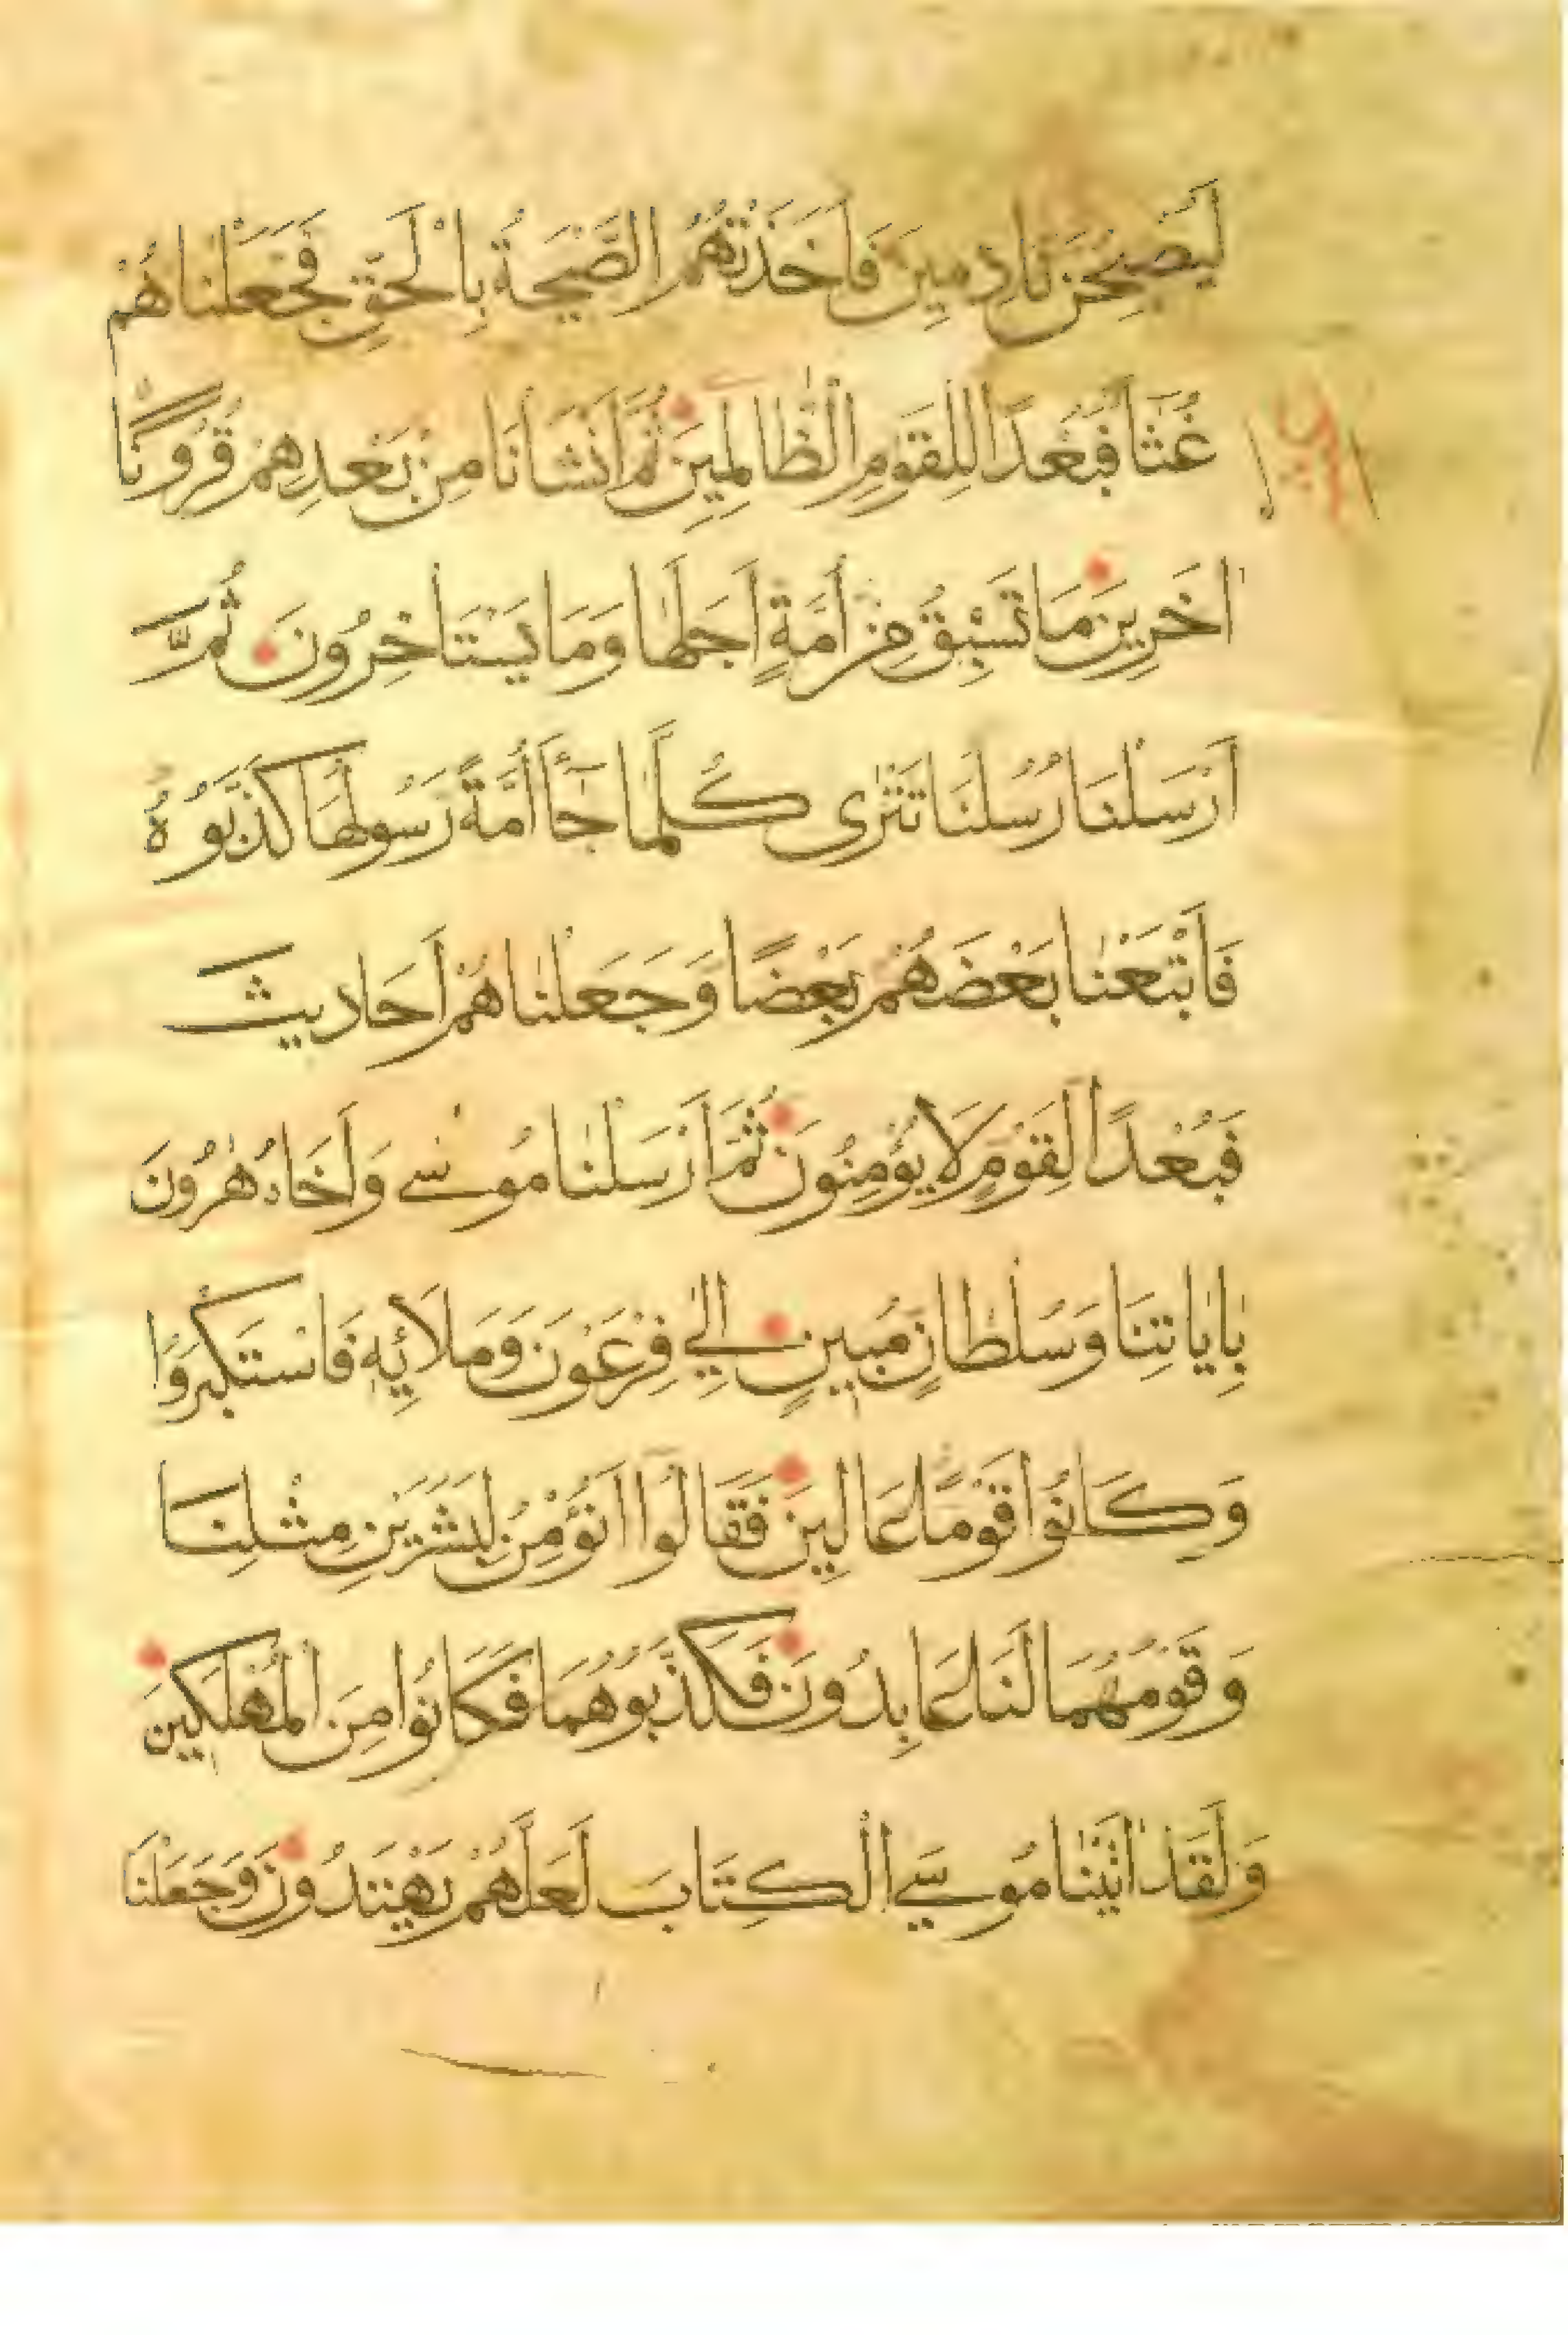 لَيُصْبِحُنَّ نَادِمِينَ فَاَخَذَتْهُمُ الصَّيْحَةُ بِالْحَقِّ فَجَعَلْنَاهُمْ
غُثَآءً فَبُعْدًا لِلْقَوْمِ الظَّالِمِينَ ثُمَّ اَنْشَاْنَا مِنْ بَعْدِهِمْ قُرُونًا
اخَرِينَ مَا تَسْبِقُ مِنْ اُمَّةٍ اَجَلَهَا وَمَا يَسْتَاخِرُونَ ثُمَّ
اَرْسَلْنَا رُسُلَنَا تَتْرٰى كُلَّمَا جَآءَ اُمَّةً رَسُولُهَا كَذَّبُوهُ
فَاَتْبَعْنَا بَعْضَهُمْ بَعْضًا وَجَعَلْنَاهُمْ اَحَادِيثَ
فَبُعْدًا لِقَوْمٍ لَا يُؤْمِنُونَ ثُمَّ اَرْسَلْنَا مُوسٰى وَاَخَاهُ هٰرُونَ
بِاٰيَاتِنَا وَسُلْطَانٍ مُبِينٍ اِلٰي فِرْعَوْنَ وَمَلَائِهِ فَاسْتَكْبَرُوا
وَكَانُوا قَوْمًا عَالِينَ فَقَالُوا اَنُؤْمِنُ لِبَشَرَيْنِ مِثْلِنَا
وَقَوْمُهُمَا لَنَا عَابِدُونَ فَكَذَّبُوهُمَا فَكَانُوا مِنَ الْمُهْلَكِينَ
وَلَقَدْ اٰتَيْنَا مُوسَي الْكِتَابَ لَعَلَّهُمْ يَهْتَدُونَ وَجَعَلْنَا